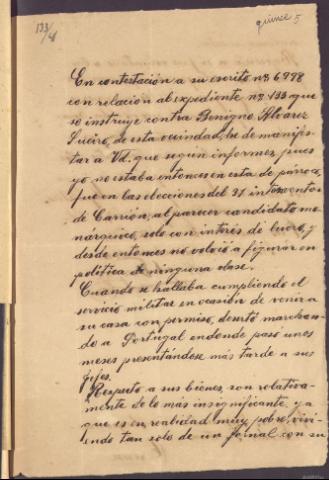 133/41
quince 5
En contestación a su escrito nº 6978
con relación al expediente nº 133 que
se instruye contra Benigno Alvarez
Sueiro, de esta vecindad, he de manifes-
tar a Vd. que según informes, pues
yo no estaba entonces en esta de párroco,
fue en las elecciones del 31 interventor
de Carrión, al parecer candidato mo-
nárquico, solo con interés de lucro, y
desde entonces no volvió a figurar en
política de ninguna clase.
Cuando se hallaba cumpliendo el
servicio militar en ocasión de venir a
su casa con permiso, desertó marchan-
do a Portugal endonde pasó unos
meses presentándose más tarde a sus
gefes.
Respecto a sus bienes, son relativa-
mente de lo más insignificante, ya
que es en realidad muy pobre, vivi-
endo tan solo de un jornal con su